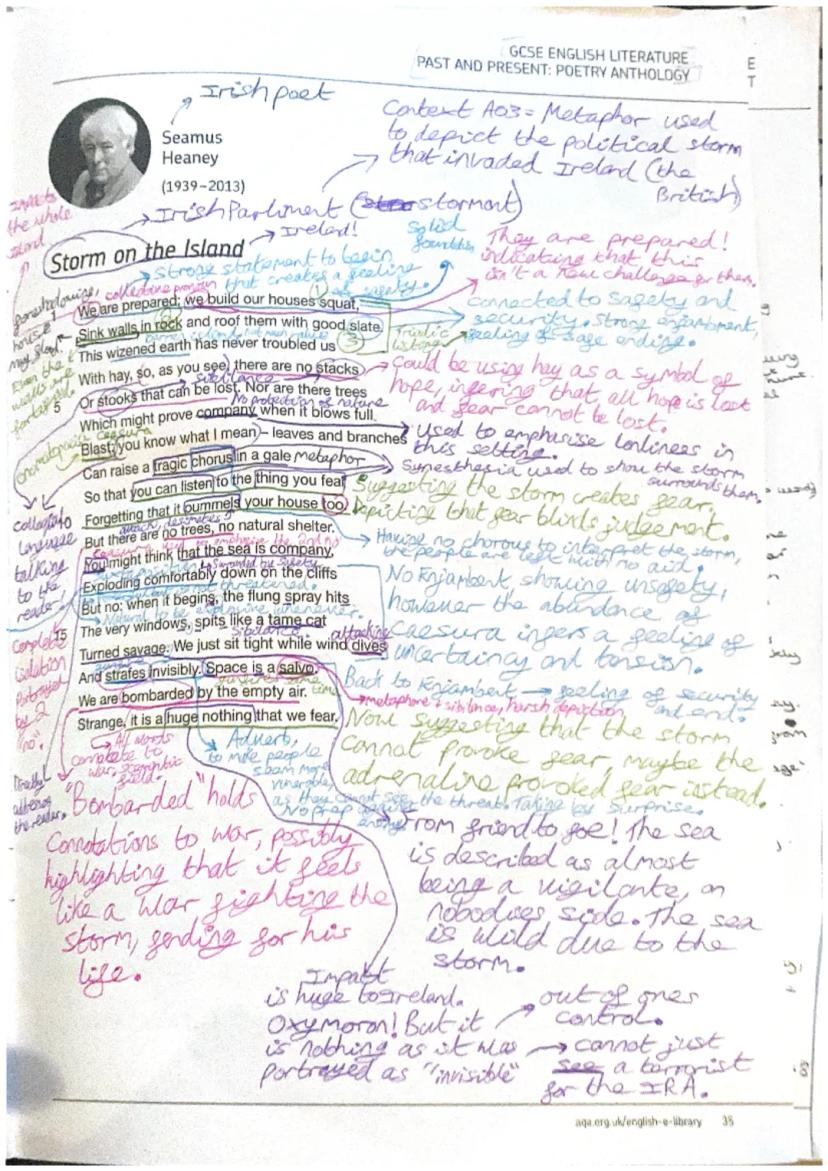 GCSE ENGLISH LITERATURE
PAST AND PRESENT: POETRY ANTHOLOGY
E
T
Irish poet
Seamus
Heaney
(1939–2013)
Context AO3 = Metaphor used
to depict the political storm
that invaded Ireland (the
British)
Irish Parliment (stormont)
Ireland!
Impacts
the whole
island
Storm on the Island
solid
foundation
They are prepared!
indicating that this
isn't a new challenge for them.
Strong statement to begin
that creates a feeling
of safety.
collective pronoun
We are prepared: we build our houses squat,
Sink walls in rock and roof them with good slate.
This wizened earth has never troubled us
With hay, so, as you see, there are no stacks
5
Or stooks that can be lost. Nor are there trees
Which might prove company when it blows full
Blast: you know what I mean – leaves and branches
Can raise a tragic chorus in a gale
So that you can listen to the thing you fear
10
Forgetting that it pummels your house too.
But there are no trees, no natural shelter.
You might think that the sea is company,
Exploding comfortably down on the cliffs
But no: when it begins, the flung spray hits
15
The very windows, spits like a tame cat
Turned savage. We just sit tight while wind dives
And strafes invisibly. Space is a salvo.
We are bombarded by the empty air.
Strange, it is a huge nothing that we fear.
connected to safety and
security. Strong enjambment,
feeling of safe ending.
Triadic
listing
3
sibilance
No protection of nature
Could be using hay as a symbol of
hope, infering that, all hope is lost
and fear cannot be lost.
Used to emphasise lonliness in
this setting.
onomatopoeia caesura
metaphor
Synesthesia used to show the storm
surrounds them.
Suggesting the storm creates fear.
Depicting that fear blinds judgement.
Having no chorous to interpret the storm,
the people are left with no aid.
No Enjambent, showing unsafety,
however the abundance of
Caesura infers a feeling of
uncertaincy and tension.
collogial
language
talking
to the
reader
Complete
isolation
Portrayed
by 2
"no".
sibilance
attacking
Back to Enjambent → feeling of security
and end.
metaphore + sibilance, harsh depiction
Now suggesting that the storm
cannot provoke fear, maybe the
adrenaline provoked fear instead.
All words
complete to
war, semantic
field.
Adverb,
to make people
seem more
vunerable,
as they cannot see the threat. Taking by surprise.
No prep against
enemy
Directly
address
the reader.
"Bombarded" holds
Connotations to war, possibly
highlighting that it feels
like a war fighting the
storm, fending for his
life.
From friend to foe! The sea
is described as almost
being a vigilante, on
nobodies side. The sea
is wild due to the
storm.
Impact
is huge to Ireland.
Oxymoron! But it
is nothing as it was
portrayed as "invisible"
out of ones
control.
cannot just
see a terrorist
for the IRA.
aqa.org.uk/english-e-library 35